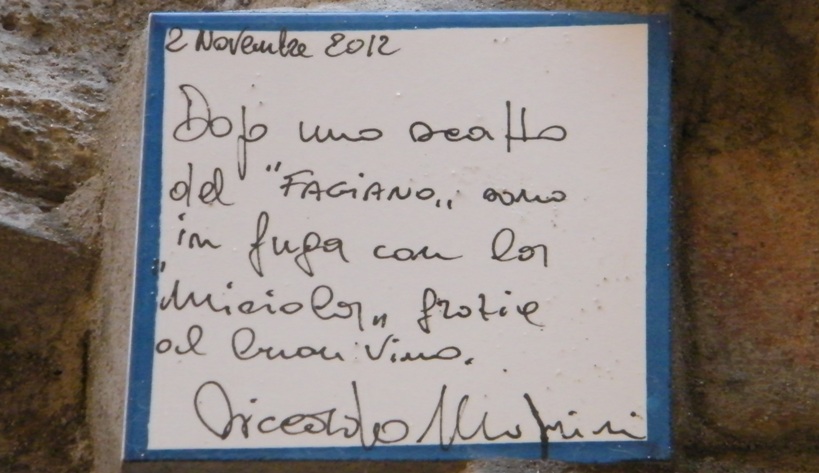 2 Novembre 2012
Dopo uno scatto
del "FAGIANO„ sono
in fuga con la
"Miciola„ grazie
al buon vino.
Riccardo Magrini